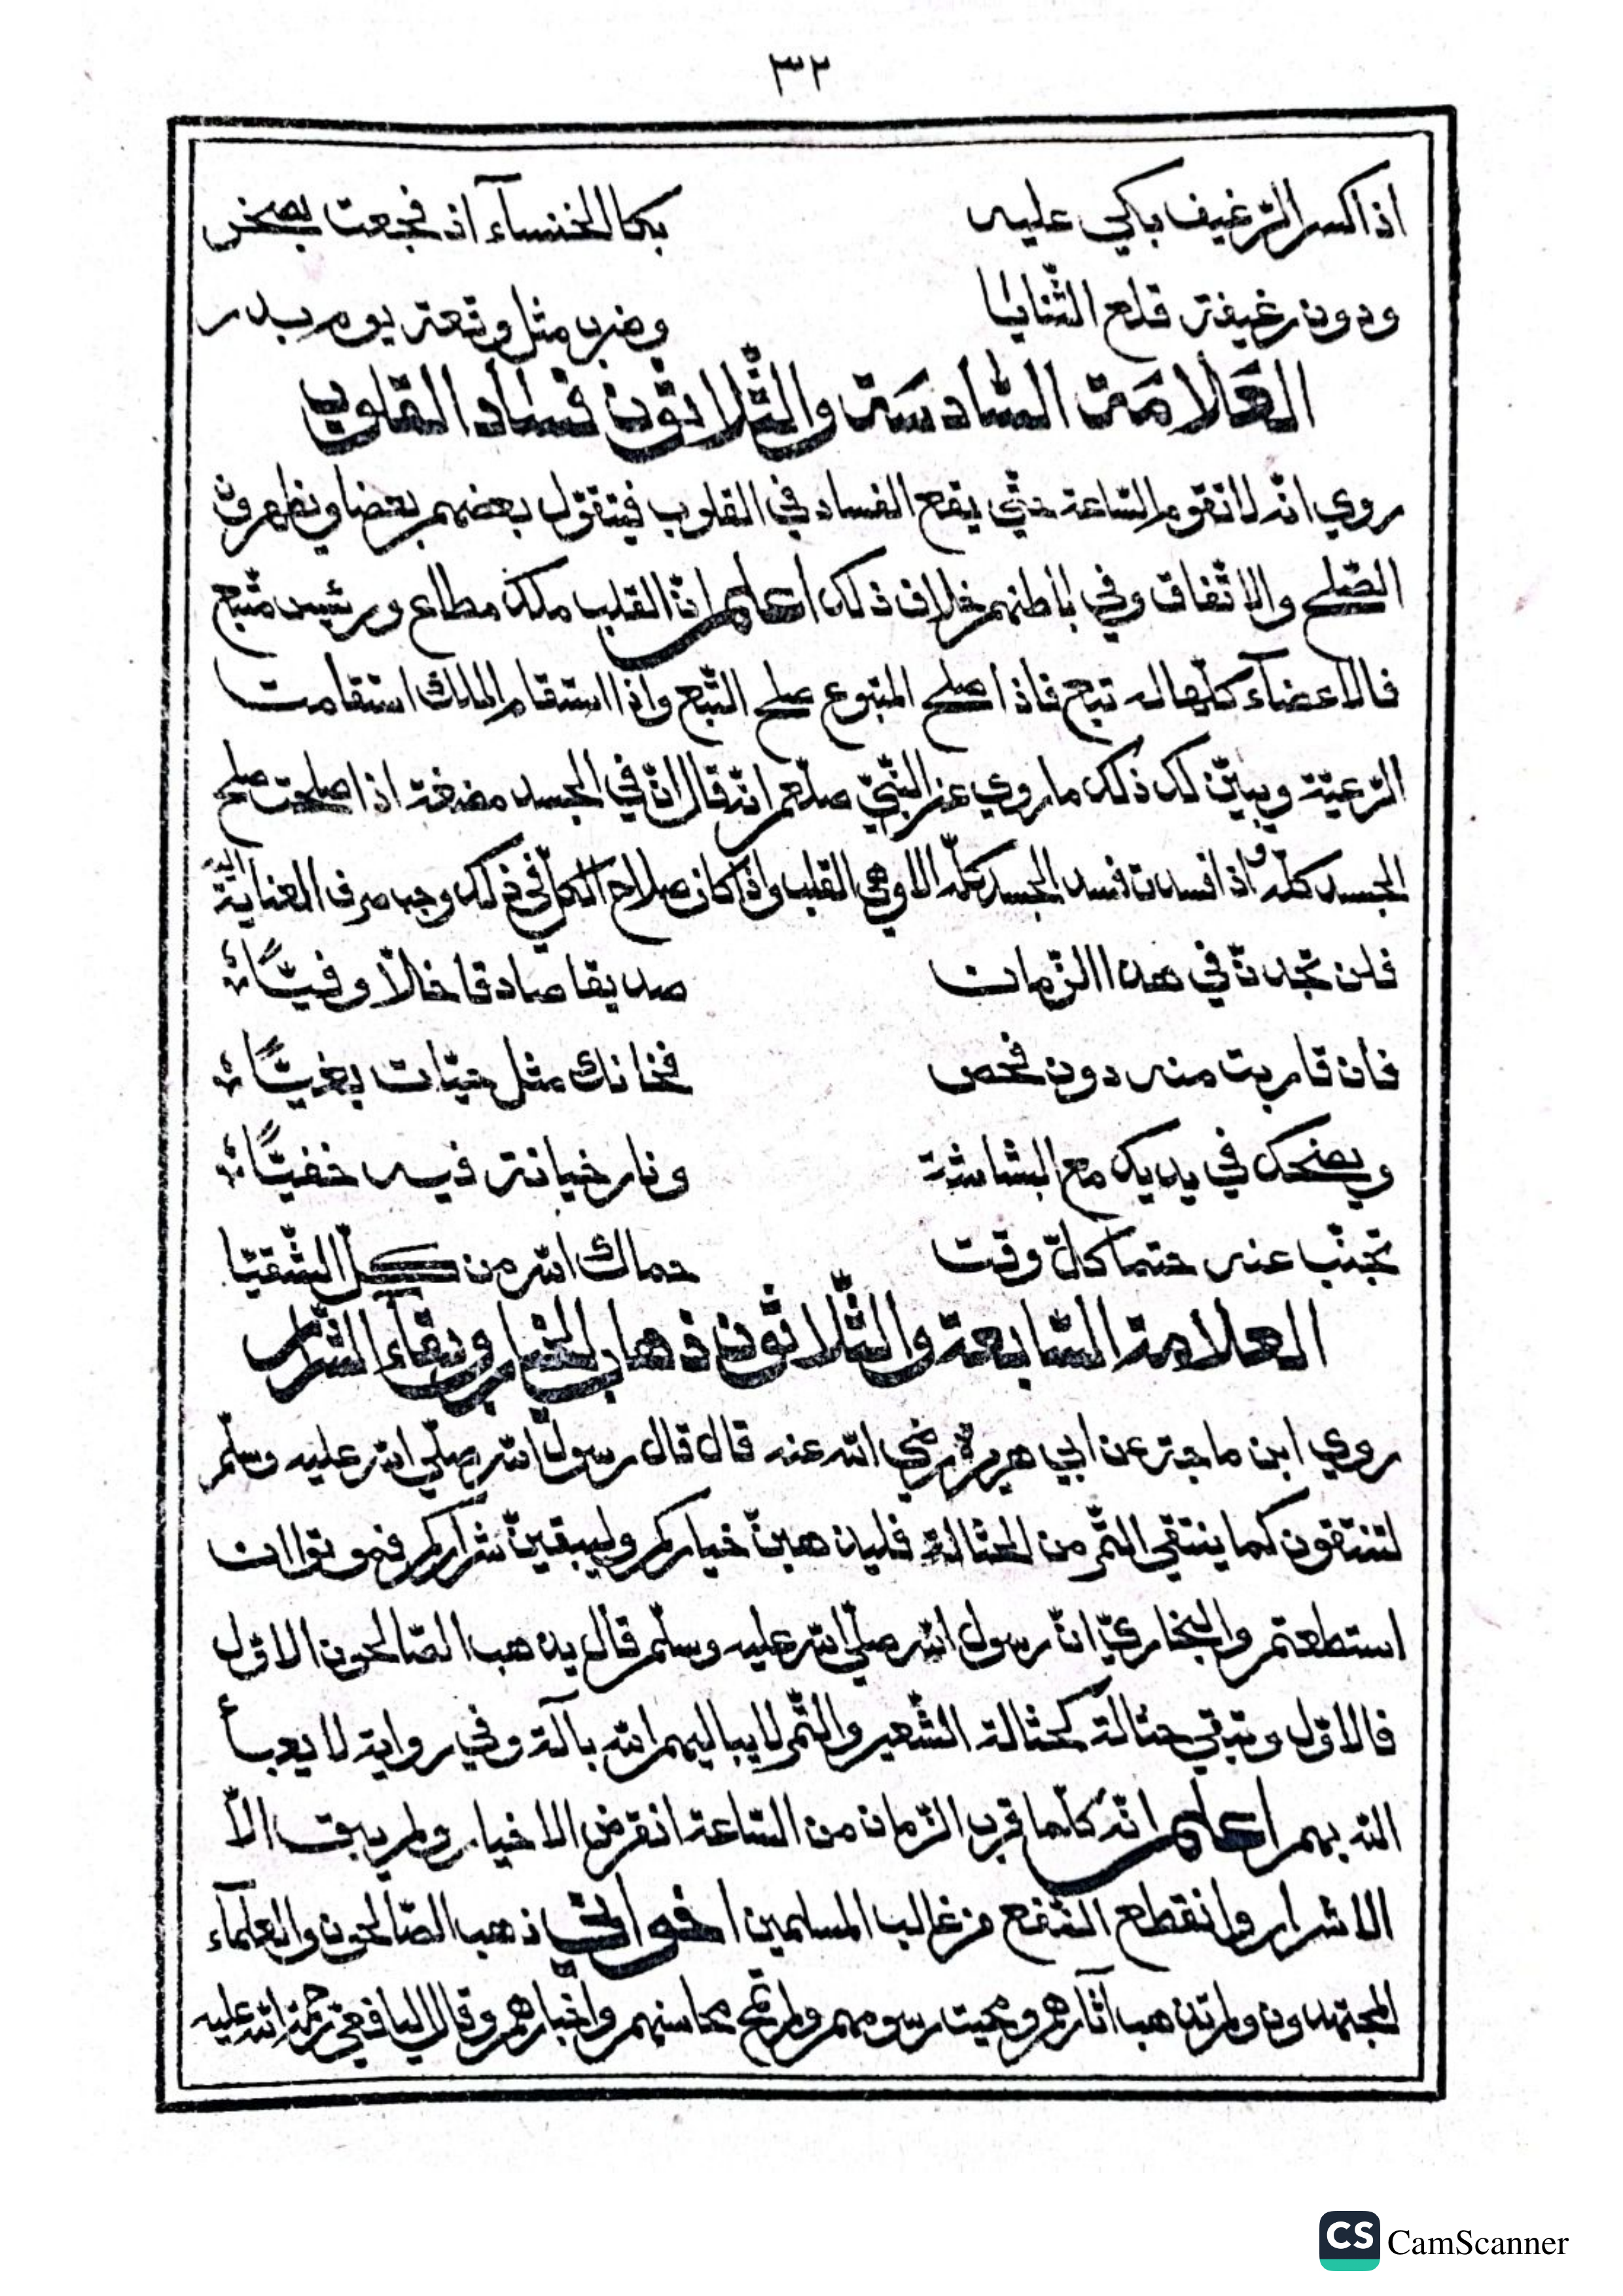 ٣٢
اذا كسر الرّغيف باكي عليه بكا الخنسآء اذ فجعت بصخر
ودون رغيفة قلع الثّنايا وضرب مثل وقعة يوم بدر
العَلامَة السّادسَة والثّلاثون فساد القلوب
روي انّه لا تقوم السّاعة حتّي يقع الفساد في القلوب فيتقوّل بعضهم بعضا ويظهرون
الصّلح والاتّفاق وفي باطنهم خلاف ذلك اعلم انّ القلب ملك مطاع ورئيس متّبع
فالاعضآء كلّها له تبع فاذا صلح المتبوع صلح التّبع واذا استقام الملك استقامت
الرّعيّة ويبيّن لك ذلك ما روي عن النّبيّ صلّعم انّه قال انّ في الجسد مضغة اذا صلحت صلح
الجسد كلّه واذا فسدت فسد الجسد كلّه الا وهي القلب واذا كان صلاح الكلّ في ذلك وجب صرف العناية اليه
فلن تجدنّ في هذا الزّمان صديقا صادقا خالاّ وفيّاً
فان قاربت منه دون فحص فخانك مثل حيّات بغيّاً
ويضحك في يديك مع البشاشة ونار خيانة فيه خفيّاً
تجنّب عنه حتما كلّ وقت حماك الله من كلّ الشّقيّا
العلامة السّابعة والثّلاثون ذهاب الخيار وبقآء الشّرار
روي ابن ماجة عن ابي هريرة رضي الله عنه قال قال رسول الله صلّي الله عليه وسلّم
لتنتقون كما ينتقي التّمر من الحثالة فليذهبنّ خياركم وليبقينّ شراركم فموتوا ان
استطعتم والبخاريّ انّ رسول الله صلّي الله عليه وسلّم قال يذهب الصّالحون الاوّل
فالاوّل وتبقي حثالة كحثالة الشّعير والتّمر لا يباليهم الله بالة وفي رواية لا يعبأ
الله بهم اعلم انّه كلّما قرب الزّمان من السّاعة انقرض الاخيار ولم يبق الاّ
الاشرار وانقطع النّفع من غالب المسلمين اخواني ذهب الصّالحون والعلمآء
المجتهدون ولم تذهب آثارهم ومحيت رسومهم ولم تمح محاسنهم واخبارهم وقال اليافعي رحمة الله عليه
CS CamScanner